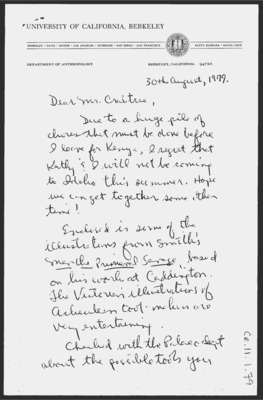 UNIVERSITY OF CALIFORNIA, BERKELEY
BERKELEY • DAVIS • IRVINE • LOS ANGELES • RIVERSIDE • SAN DIEGO • SAN FRANCISCO
SANTA BARBARA • SANTA CRUZ
DEPARTMENT OF ANTHROPOLOGY
BERKELEY, CALIFORNIA 94720
30th August, 1979.
Dear Mr. Crabtree,
Due to a huge pile of
chores that must be done before
I leave for Kenya, I regret that
Kathy & I will not be coming
to Idaho this summer. Hope
we can get together some other
time!
Enclosed is some of the
illustrations from Smith's
Man, the Primeval Savage based
on his work at Caddington.
The Victorian illustrations of
Acheulean tool-makers are
very entertaining.
Checked with the Palaeo Dept
about the possible tools you